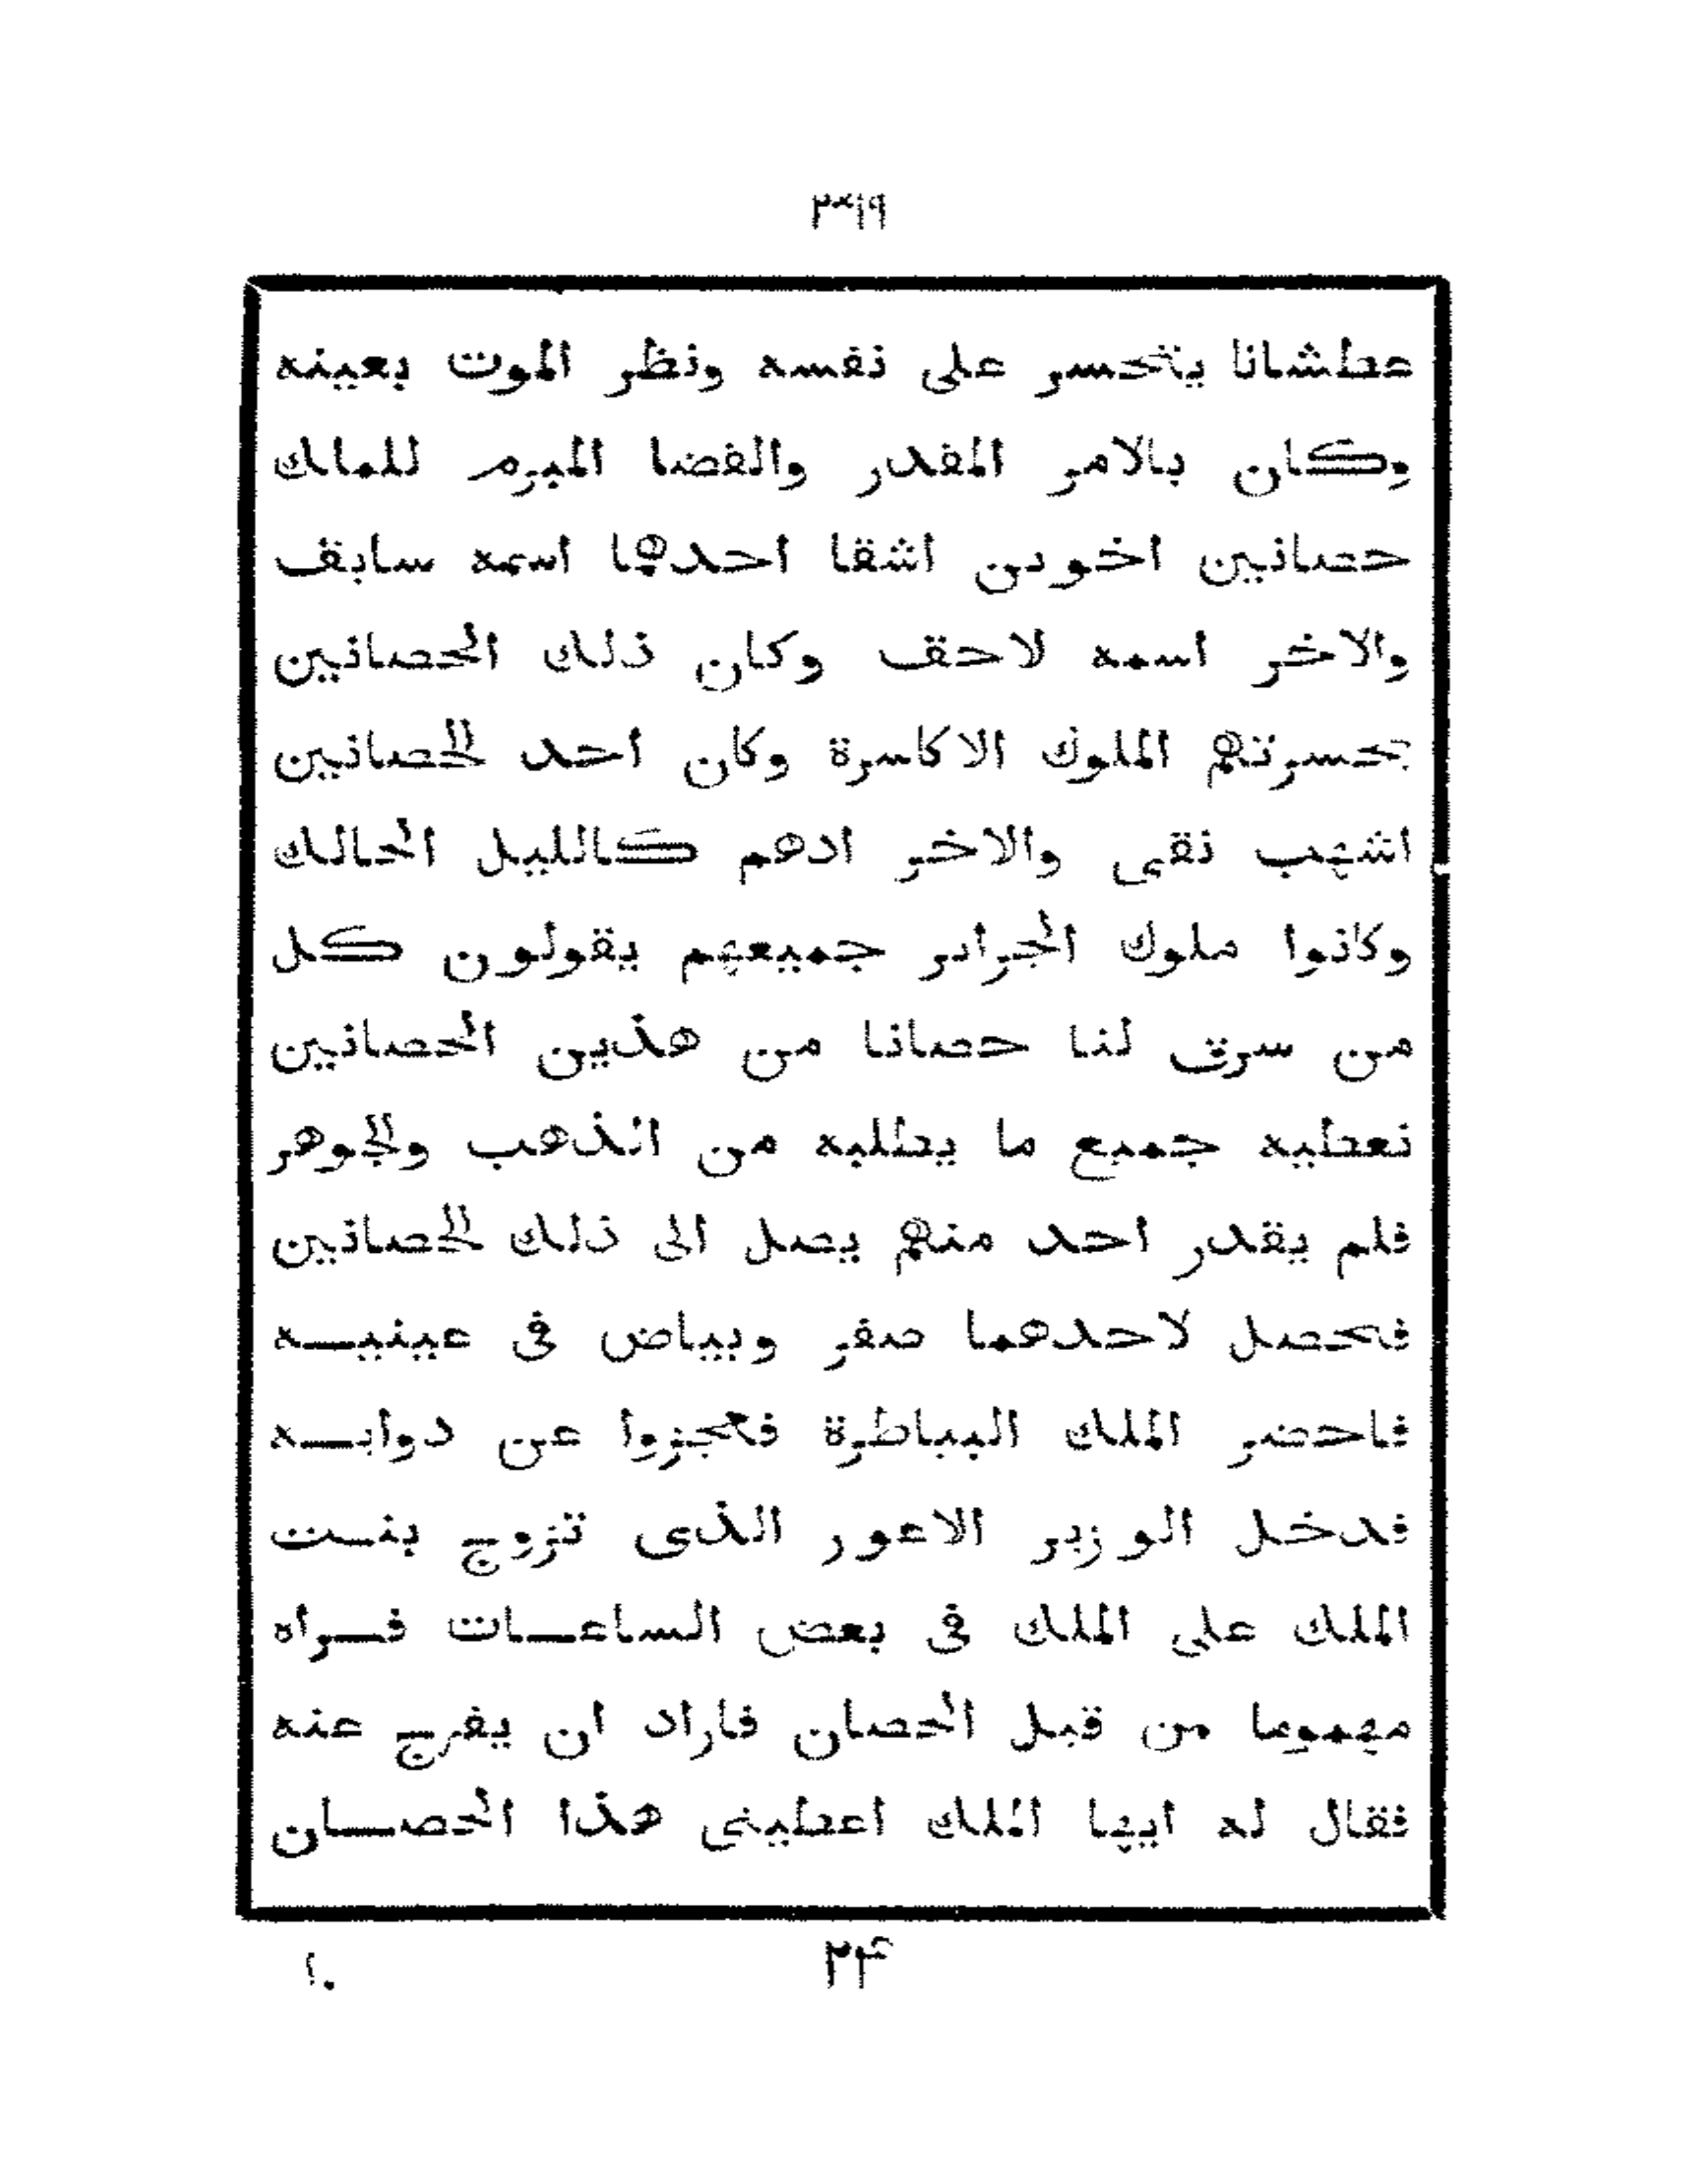 ٣٦٩
عطشانا يتحسر على نفسه ونظر الموت بعينه
وكان بالامر المقدر والقضا المبرم للمالك
حصانين اخوين اشقا احدهما اسمه سابق
والاخر اسمه لاحق وكان ذلك الحصانين
بحسرتهم الملوك الاكاسرة وكان احد الحصانين
اشهب نقى والاخر ادهم كالليل الحالك
وكانوا ملوك الجراير جميعهم يقولون كل
من سرق لنا حصانا من هذين الحصانين
نعطيه جميع ما يطلبه من الذهب والجوهر
فلم يقدر احد منهم يصل الى ذلك الحصانين
فحصل لاحدهما صفر وبياض فى عينيه
فاحضر الملك البياطرة فعجزوا عن دوابه
فدخل الوزير الاعور الذى تزوج بنت
الملك على الملك فى بعض الساعات فراه
مهموما من قبل الحصان فاراد ان يفرج عنه
فقال له ايها الملك اعطينى هذا الحصان
٢۴
١٠